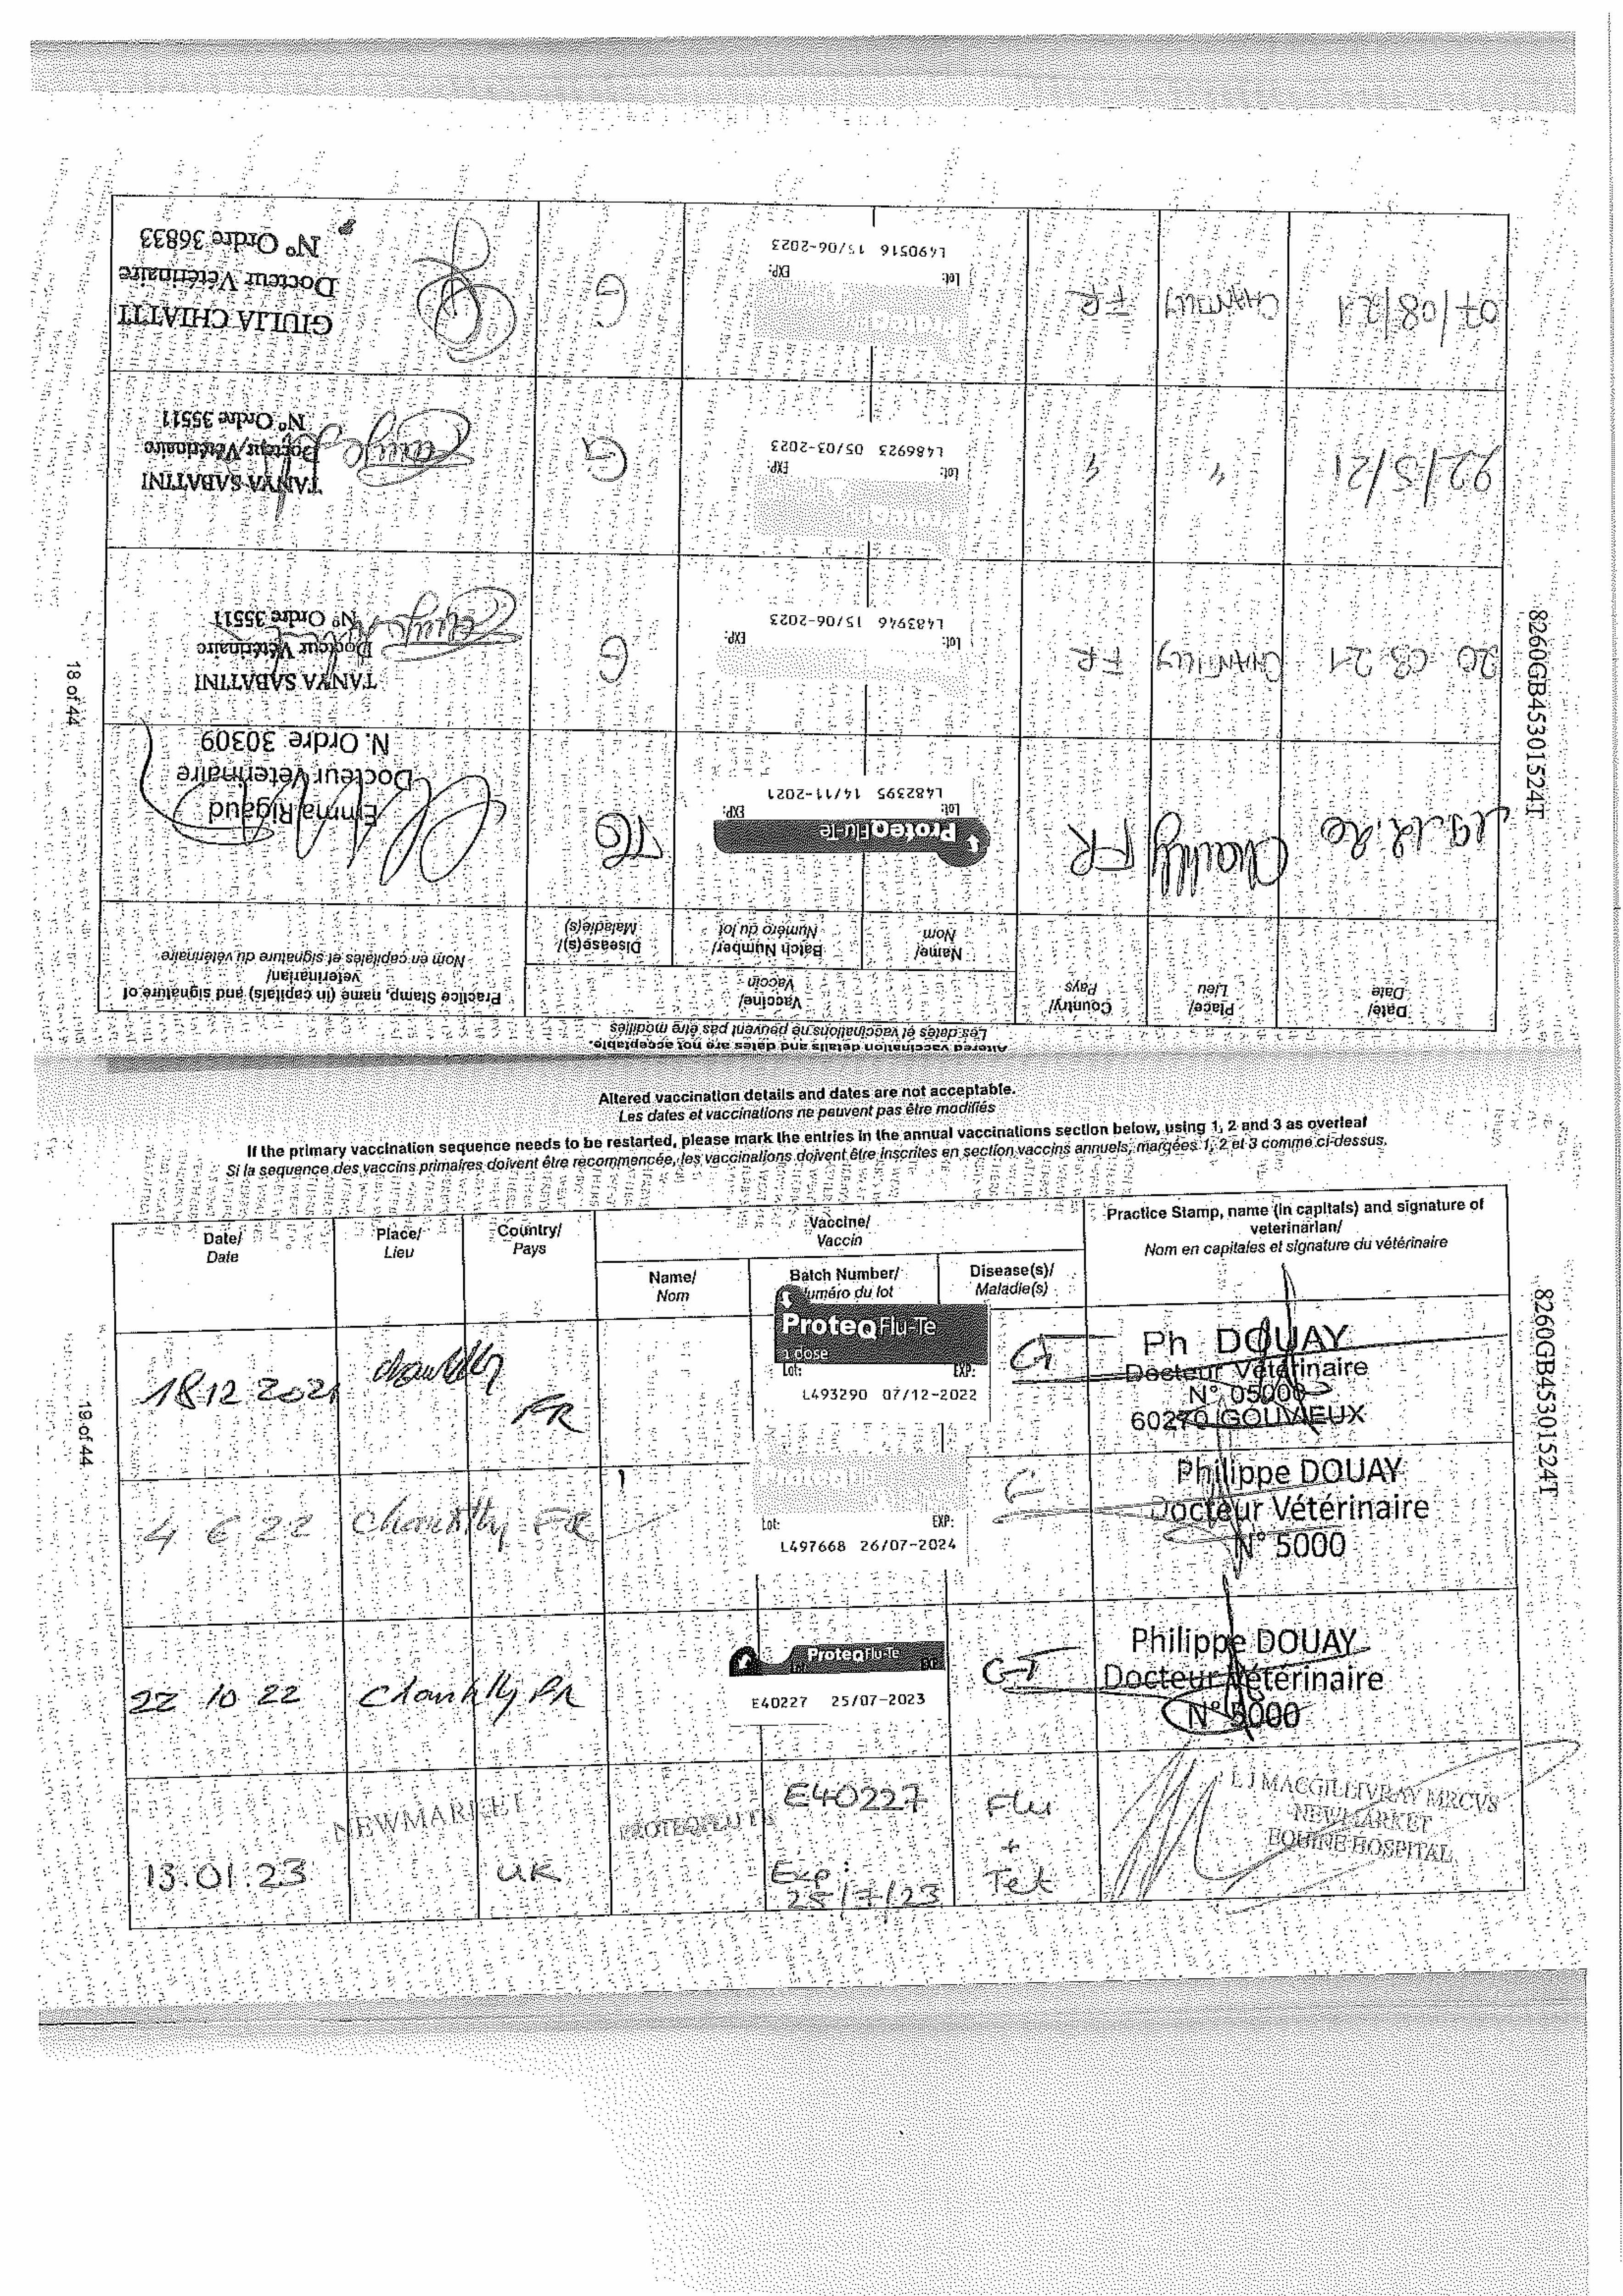 Altered vaccination details and dates are not acceptable.
Les dates et vaccinations ne peuvent pas être modifiés
Date/
Date
Place/
Lieu
Country/
Pays
Vaccine/
Vaccin
Name/
Nom
Batch Number/
Numéro du lot
Disease(s)/
Maladie(s)
Practice Stamp, name (in capitals) and signature of
veterinarian/
Nom en capitales et signature du vétérinaire
19.12.20
Chantilly
FR
ProteqFlu-Te
Lot:
EXP:
L482395 14/11-2021
TG
Emma Rigaud
Docteur Vétérinaire
N. Ordre 30309
20 03 21
CHANTILLY
FR
Lot:
EXP:
L483946 15/06-2023
G
TANYA SABATTINI
Docteur Vétérinaire
N° Ordre 35511
/5/21
"
"
Lot:
EXP:
L486923 05/03-2023
G
TANYA SABATTINI
Docteur Vétérinaire
N° Ordre 35511
07/08/21
CHANTILLY
FR
Lot:
EXP:
L490516 15/06-2023
G
GIULIA CHIATTI
Docteur Vétérinaire
N° Ordre 36833
18 of 44
8260GB45301524T
Altered vaccination details and dates are not acceptable.
Les dates et vaccinations ne peuvent pas être modifiés
If the primary vaccination sequence needs to be restarted, please mark the entries in the annual vaccinations section below, using 1, 2 and 3 as overleaf
Si la sequence des vaccins primaires doivent être recommencée, les vaccinations doivent être inscrites en section vaccins annuels, margées 1, 2 et 3 comme ci-dessus.
Date/
Date
Place/
Lieu
Country/
Pays
Vaccine/
Vaccin
Name/
Nom
Batch Number/
uméro du lot
Disease(s)/
Maladie(s)
Practice Stamp, name (in capitals) and signature of
veterinarian/
Nom en capitales et signature du vétérinaire
18 12 2021
chantilly
FR
ProteqFlu-Te
1 dose
Lot:
EXP:
L493290 07/12-2022
GT
Ph DOUAY
Docteur Vétérinaire
N° 05000
60270 GOUVIEUX
4 6 22
Chantilly
FR
Lot:
EXP:
L497668 26/07-2024
G
Philippe DOUAY
Docteur Vétérinaire
N° 5000
22 10 22
Chantilly
FR
ProteqFlu-Te
E40227 25/07-2023
GT
Philippe DOUAY
Docteur Vétérinaire
N° 5000
13.01.23
NEWMARKET
UK
PROTEQFLU TE
E40227
Exp:
25/7/23
Flu
+
Tet
L J MACGILLIVRAY MRCVS
NEWMARKET
EQUINE HOSPITAL
19 of 44
8260GB45301524T